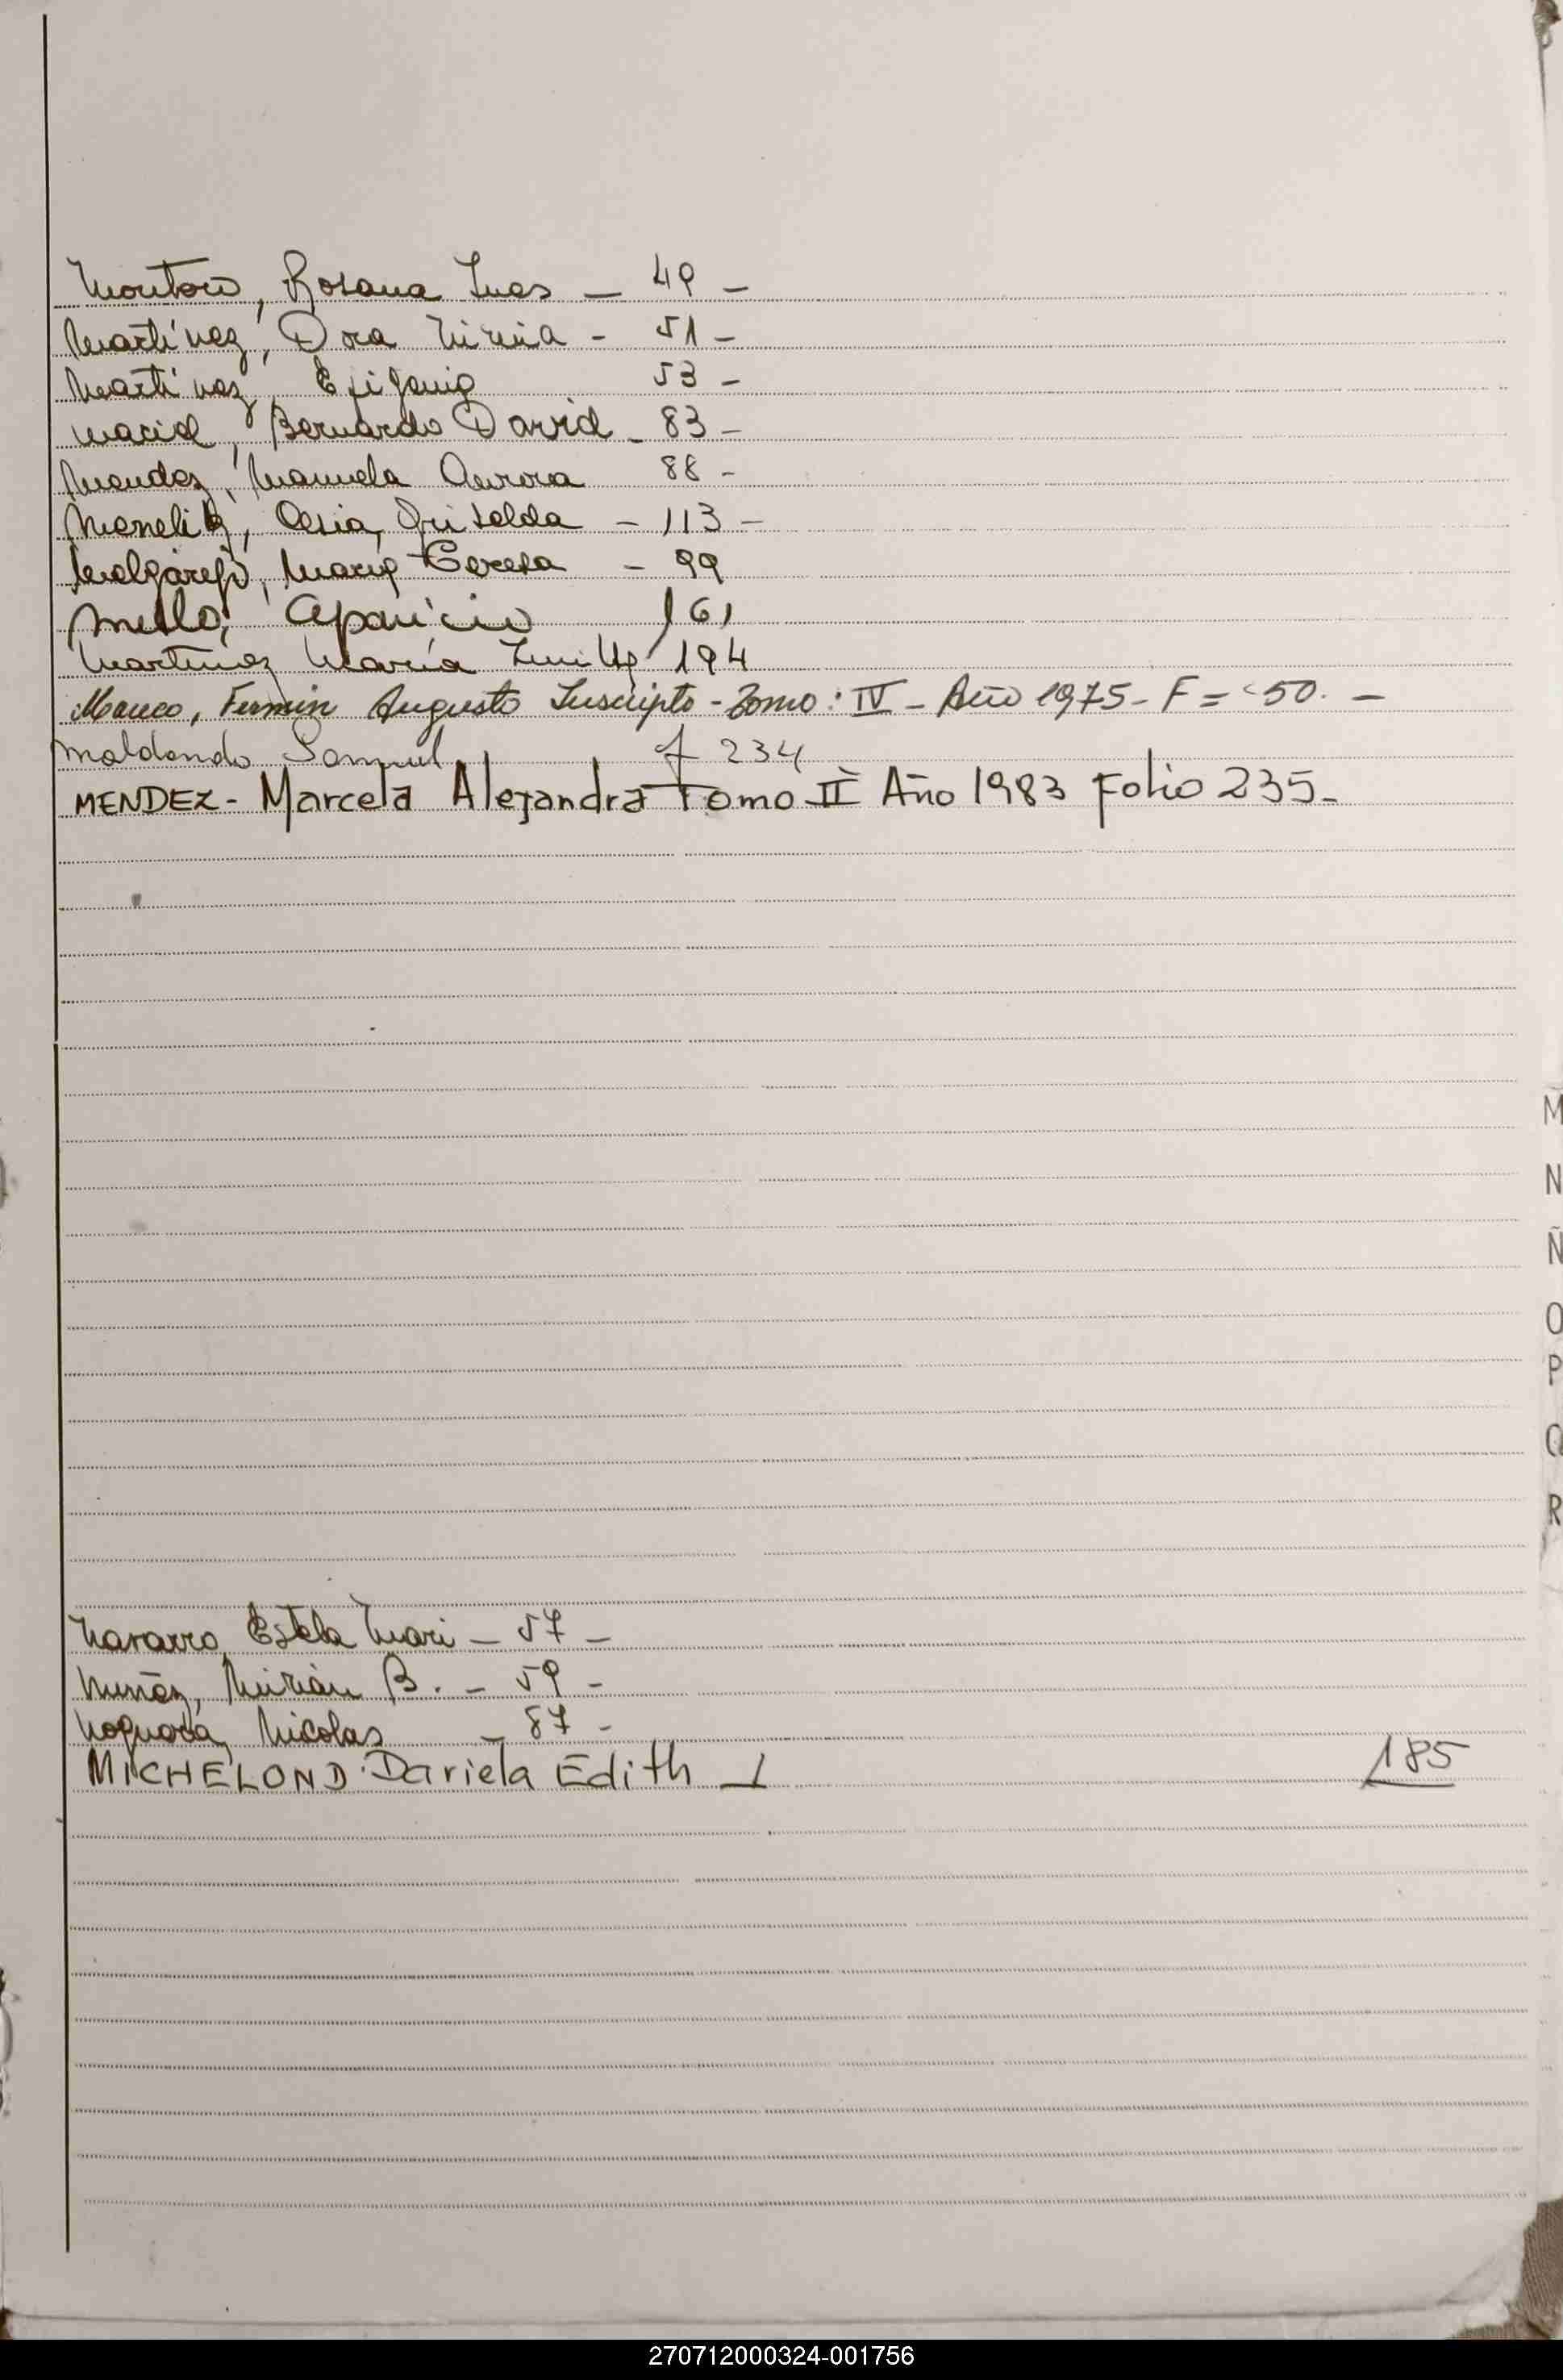 Montoro, Rosana Ines - 49 -
Martínez, Dra Mirna - 51 -
Martínez, Efigenia 53 -
Maciel, Bernardo David - 83 -
Mendez, Manuela Aurora 88 -
Griselda - 113 -
Melgarejo, María Teresa - 99
Mello, Aparicio 161
Martinez María 194
Fermin Augusto Inscripto - Tomo: IV - Año 1975 - F = 50. -
Maldonado Samuel f 234
MENDEZ - Marcela Alejandra Tomo II Año 1983 Folio 235 -
M
N
Ñ
O
P
Q
R
Navarro, Estela Mari - 57 -
Nuñez, Mirian B. - 59 -
Noguera, Nicolas - 87 -
MICHELOND Dariela Edith 185
270712000324-001756